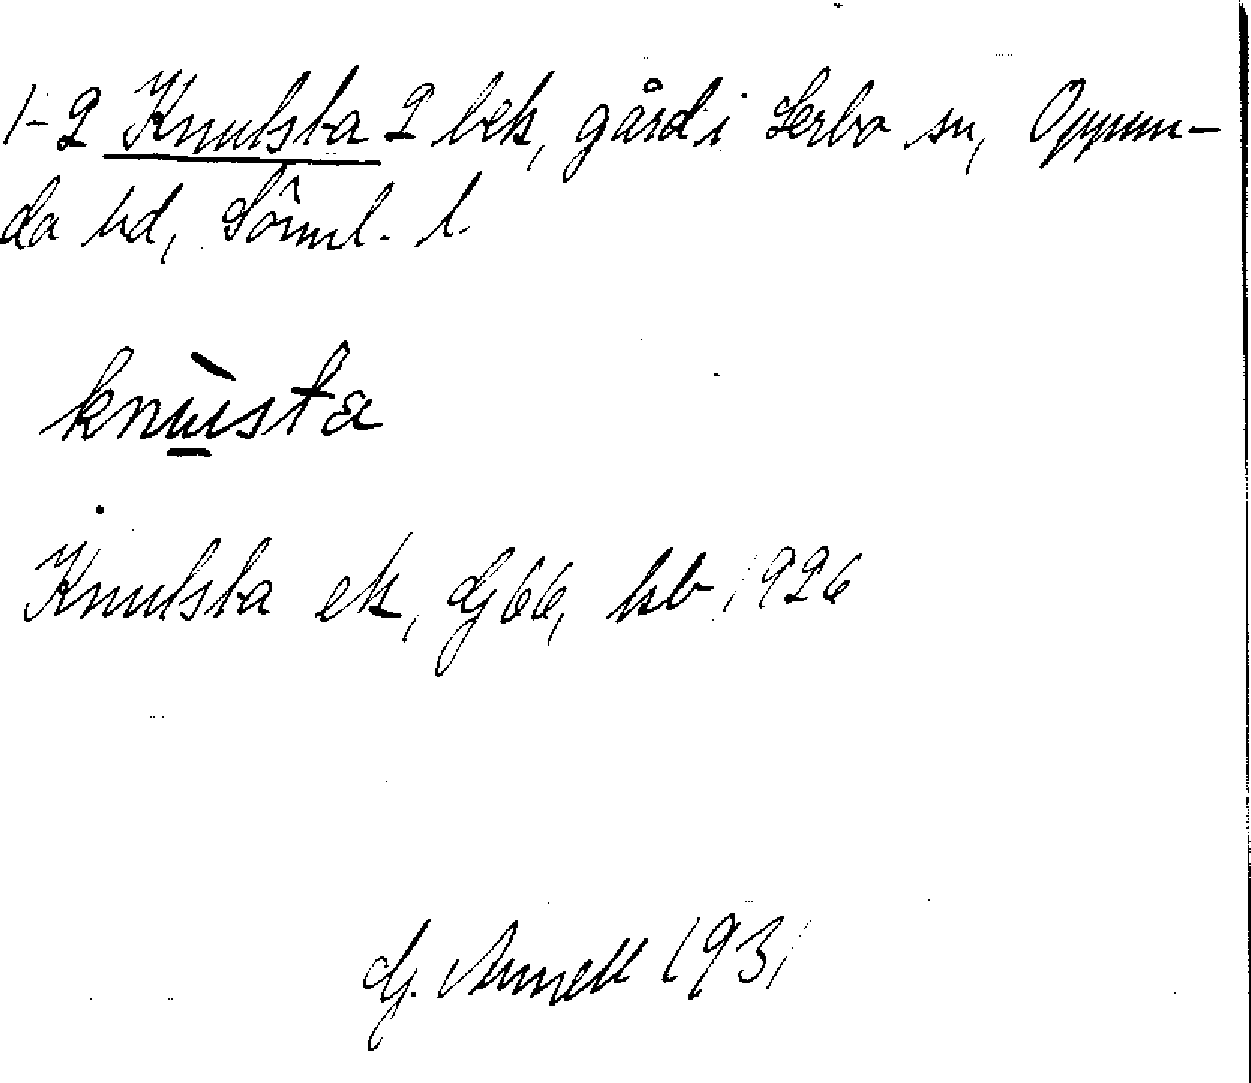 1-2 Knutsta 2 bek, gård i Lerbo sn, Oppun-
da hd, Sörml. l.
knùsta
Knutsta ek, Gj 66, hb 1926
G. Arnell 1931